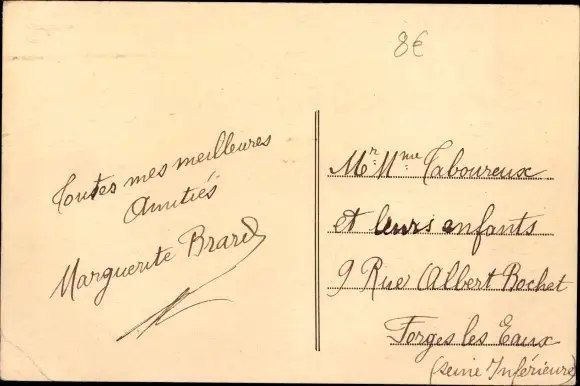 8€
Toutes mes meilleures
Amitiés
Marguerite Brard
Mr. Mme Taboureux
et leurs enfants
9 Rue Albert Bochet
Forges les Eaux
(Seine Inférieure)